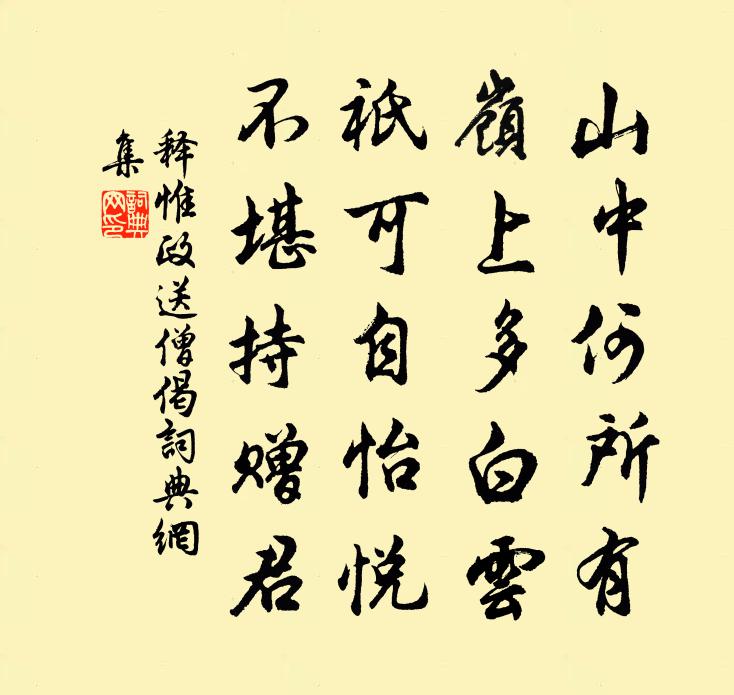 山中何所有
嶺上多白雲
祇可自怡悅
不堪持贈君
释惟政送僧偈詞典網
集
詞典
网印